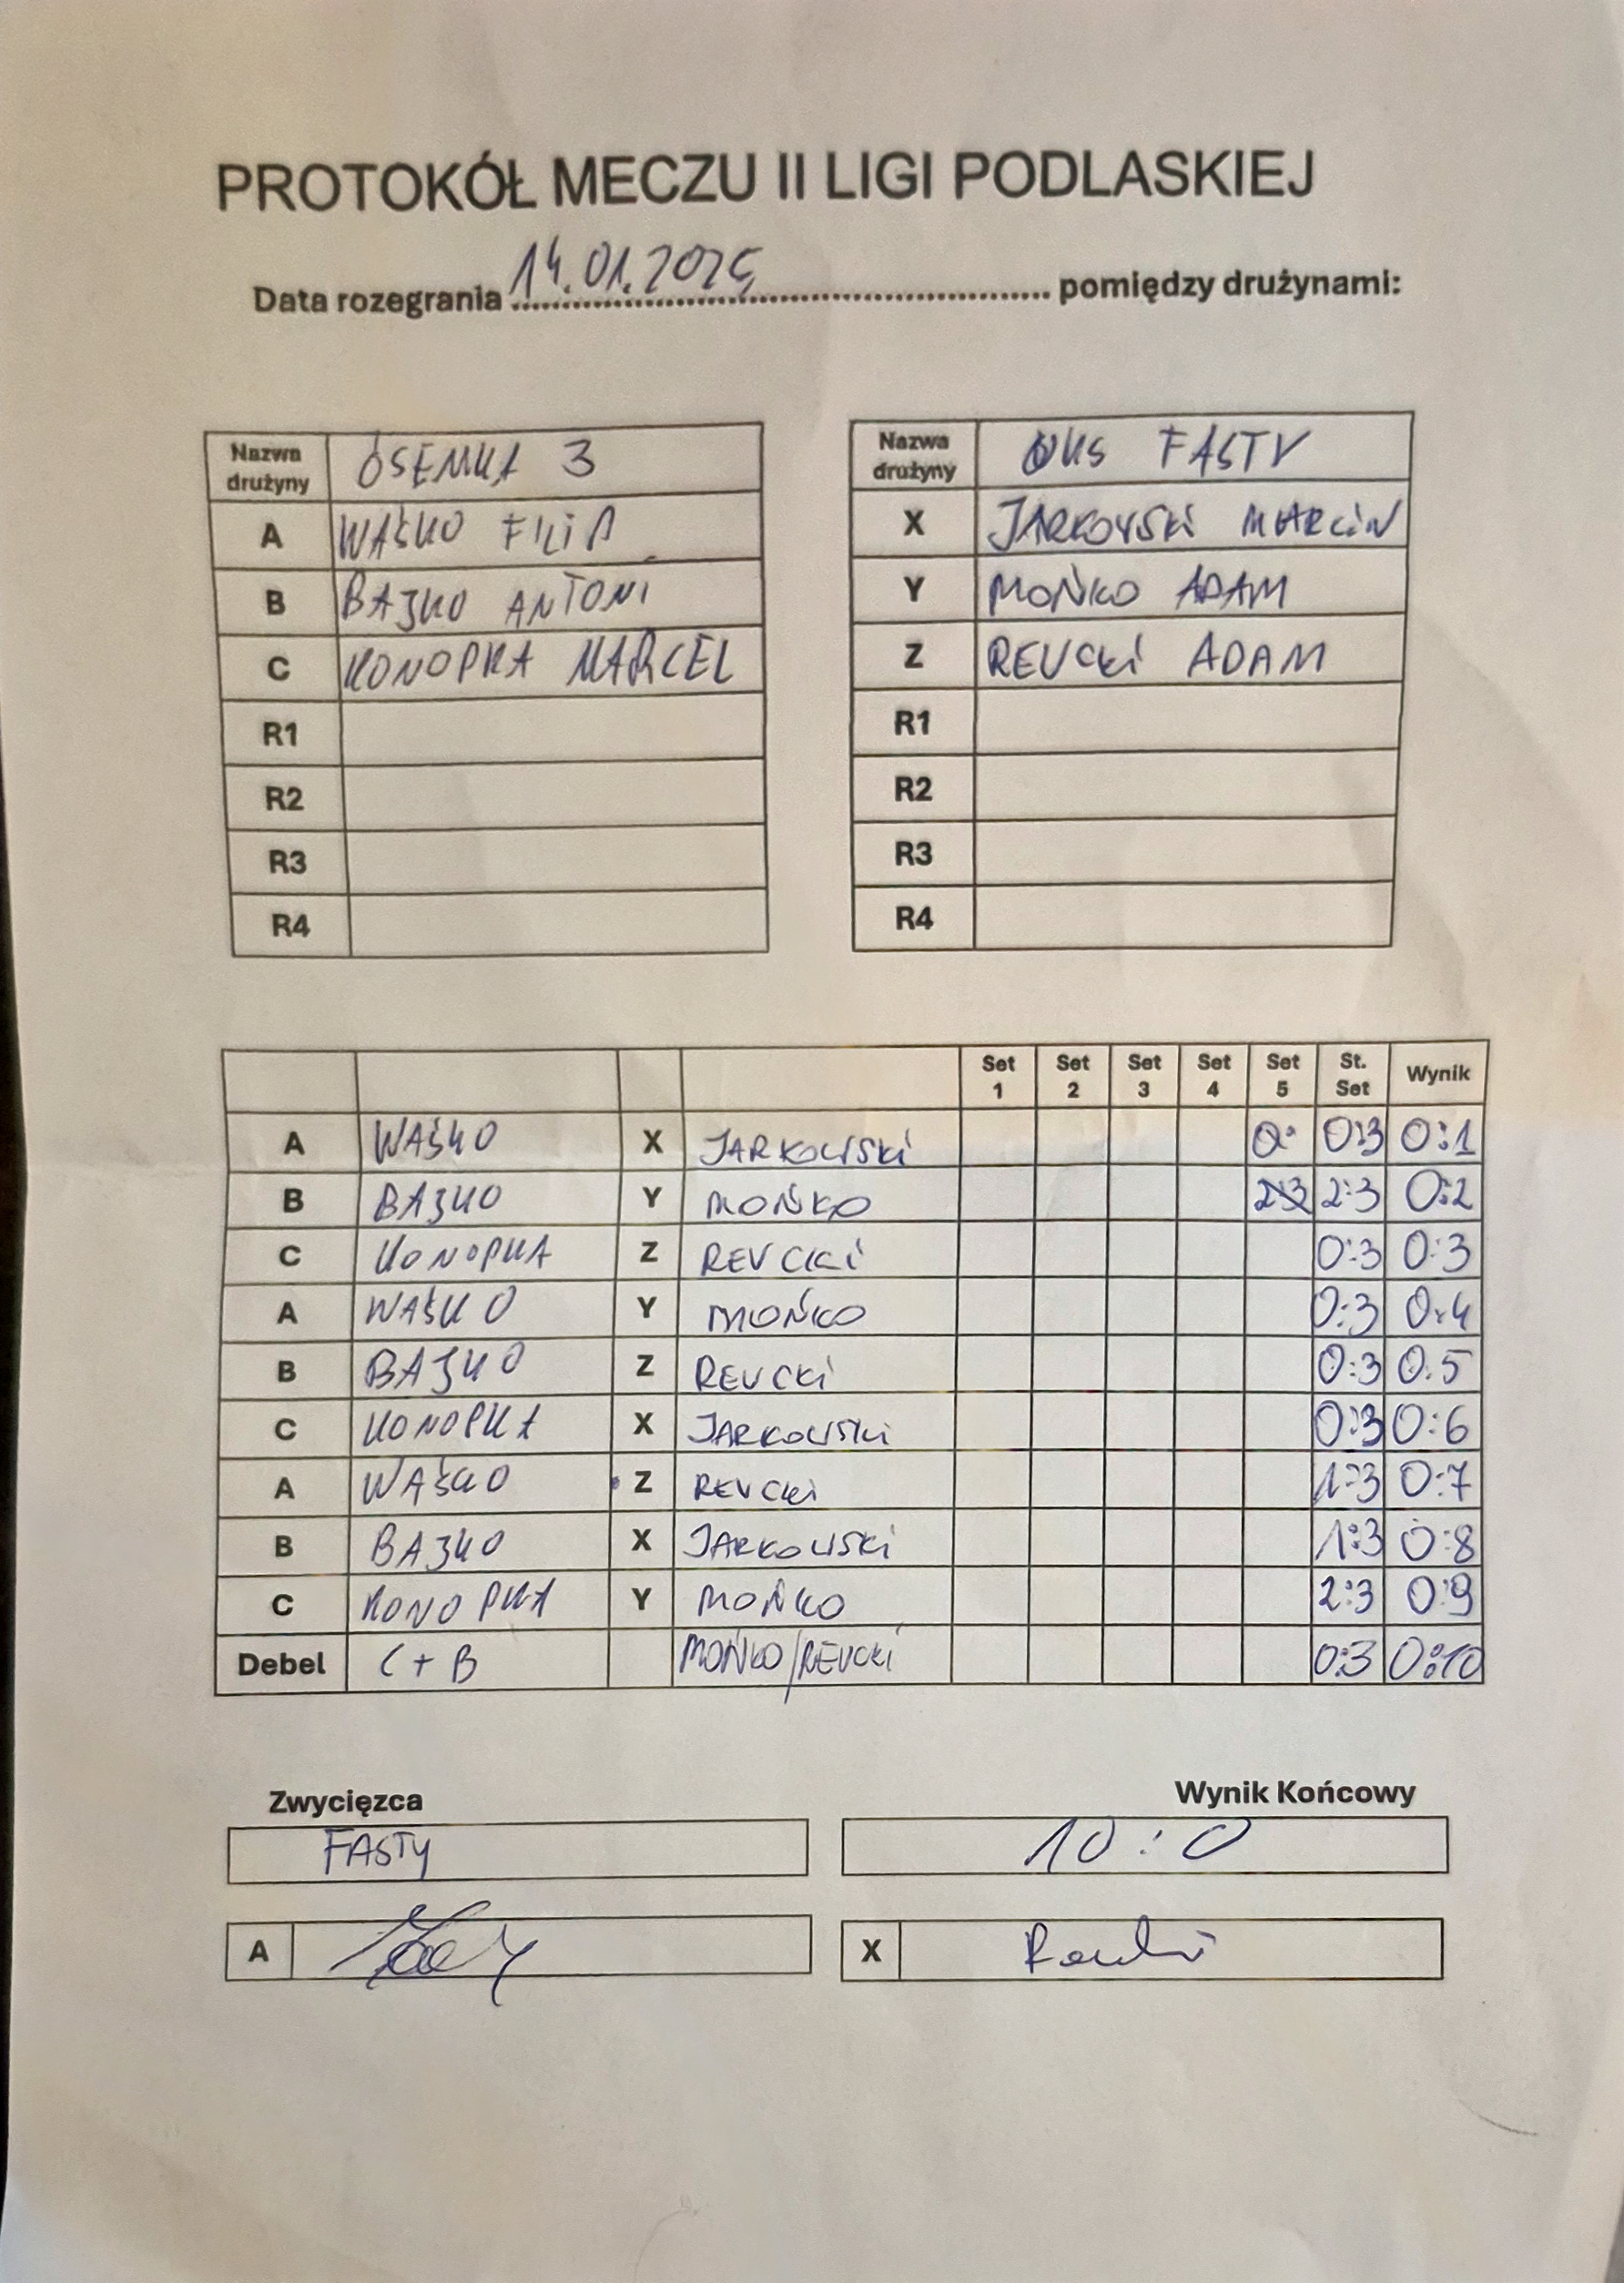 PROTOKÓŁ MECZU II LIGI PODLASKIEJ
Data rozegrania 14.01.2025 pomiędzy drużynami:
Nazwa drużyny ÓSEMKA 3
A WAŚKO FILIP
B BAJKO ANTONI
C KONOPKA MARCEL
R1
R2
R3
R4
Nazwa drużyny UKS FASTY
X JARKOWSKi MARCiN
Y MOŃKO ADAM
Z REUCKi ADAM
R1
R2
R3
R4
Set 1 Set 2 Set 3 Set 4 Set 5 St. Set Wynik
A WAŚKO X JARKOWSKi 0: 0:3 0:1
B BAJKO Y MOŃKO 2:3 2:3 0:2
C KONOPKA Z REUCKi 0:3 0:3
A WAŚKO Y MOŃKO 0:3 0:4
B BAJKO Z REUCKi 0:3 0:5
C KONOPKA X JARKOWSKi 0:3 0:6
A WAŚKO Z REUCKi 1:3 0:7
B BAJKO X JARKOWSKi 1:3 0:8
C KONOPKA Y MOŃKO 2:3 0:9
Debel C + B MOŃKO/REUCKi 0:3 0:10
Zwycięzca Wynik Końcowy
FASTY 10:0
A X